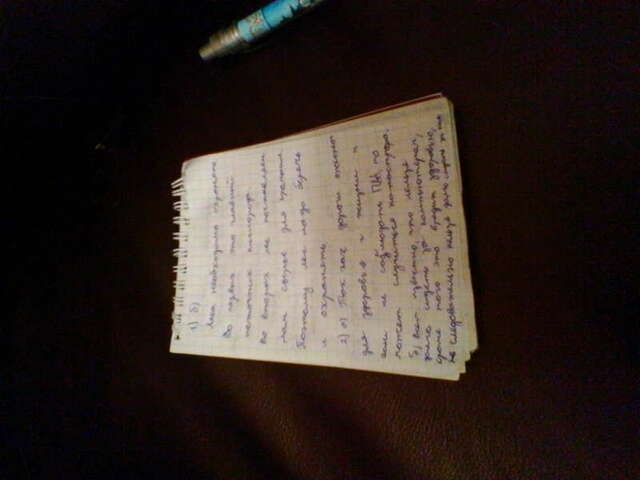 1) б)
Леса необходимо охранять
Во первых это главный
источник кислорода.
Во вторых лес поставляет
нам сырьё для
Поэтому лес надо беречь
и охранять
2) а) Так как дороги опасно
для здоровья и жизни и
если не соблюдать ПДД то
может случиться катастрофа.
б) Всем известно, что нельзя
долго сидеть за компьютером,
кроме того это вредит здоровью,
следовательно нельзя долго сидеть за